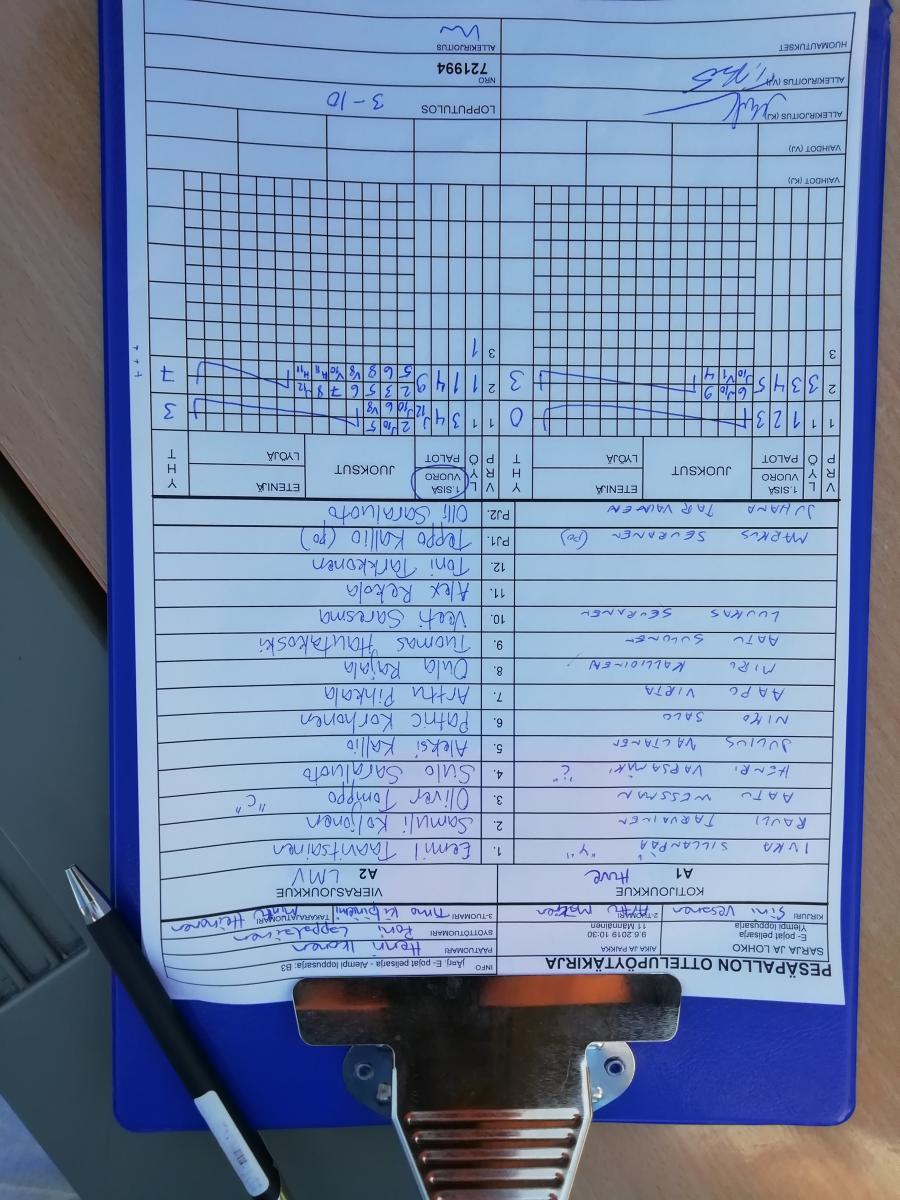 PESÄPALLON OTTELUPÖYTÄKIRJA
INFO Järj. E- pojat pelisarja - Alempi loppusarja: B3
SARJA JA LOHKO
E- pojat pelisarja
Ylempi loppusarja
AIKA JA PAIKKA
9.6.2019 10:30
11 Männäinen
PÄÄTUOMARI Henri Ikonen
SYÖTTÖTUOMARI Roni Lappalainen
KIRJURI Sini Vesanen
2-TUOMARI
3-TUOMARI Timo
TAKARAJATUOMARI Minttu Heinonen
A1 KOTIJOUKKUE
A2 VIERASJOUKKUE LMV
INKA SILLANPÄÄ 1. Eemil Taavitsainen
RAULI TARVAINEN 2. Samuli Koljonen
AATU WESSMAN 3. Oliver Tomppo "C"
HENRI VARSAMÄKI "C" 4. Sulo Saraluoto
JULIUS VALTANEN 5. Aleksi Kallio
NIKO SALO 6. Patric Korhonen
AAPO VIRTA 7. Arttu Pihkala
MIRO KALLIOINEN 8. Oula Rajala
AATU SULONEN 9. Tuomas Hautakoski
LUUKAS SEURANEN 10. Veeti Saresma
11. Alex Rekola
12. Toni Tarkkonen
MARKUS SEURANEN (PO) PJ1. Teppo Kallio (po)
JUHANA TARVAINEN PJ2. Olli Saraluoto
VRP LYÖ 1.SISÄ VUORO PALOT JUOKSUT ETENIJÄ LYÖJÄ YHT
VRP LYÖ 1.SISÄ VUORO PALOT JUOKSUT ETENIJÄ LYÖJÄ YHT
1 1 1 2 3 0
1 1 3 4 3
2 3 3 4 5 3
2 1 1 4 9 7
3
3 1
VAIHDOT (KJ)
VAIHDOT (VJ)
ALLEKIRJOITUS (KJ)
LOPPUTULOS 3-10
ALLEKIRJOITUS (VJ)
NRO 721994
HUOMAUTUKSET
ALLEKIRJOITUS